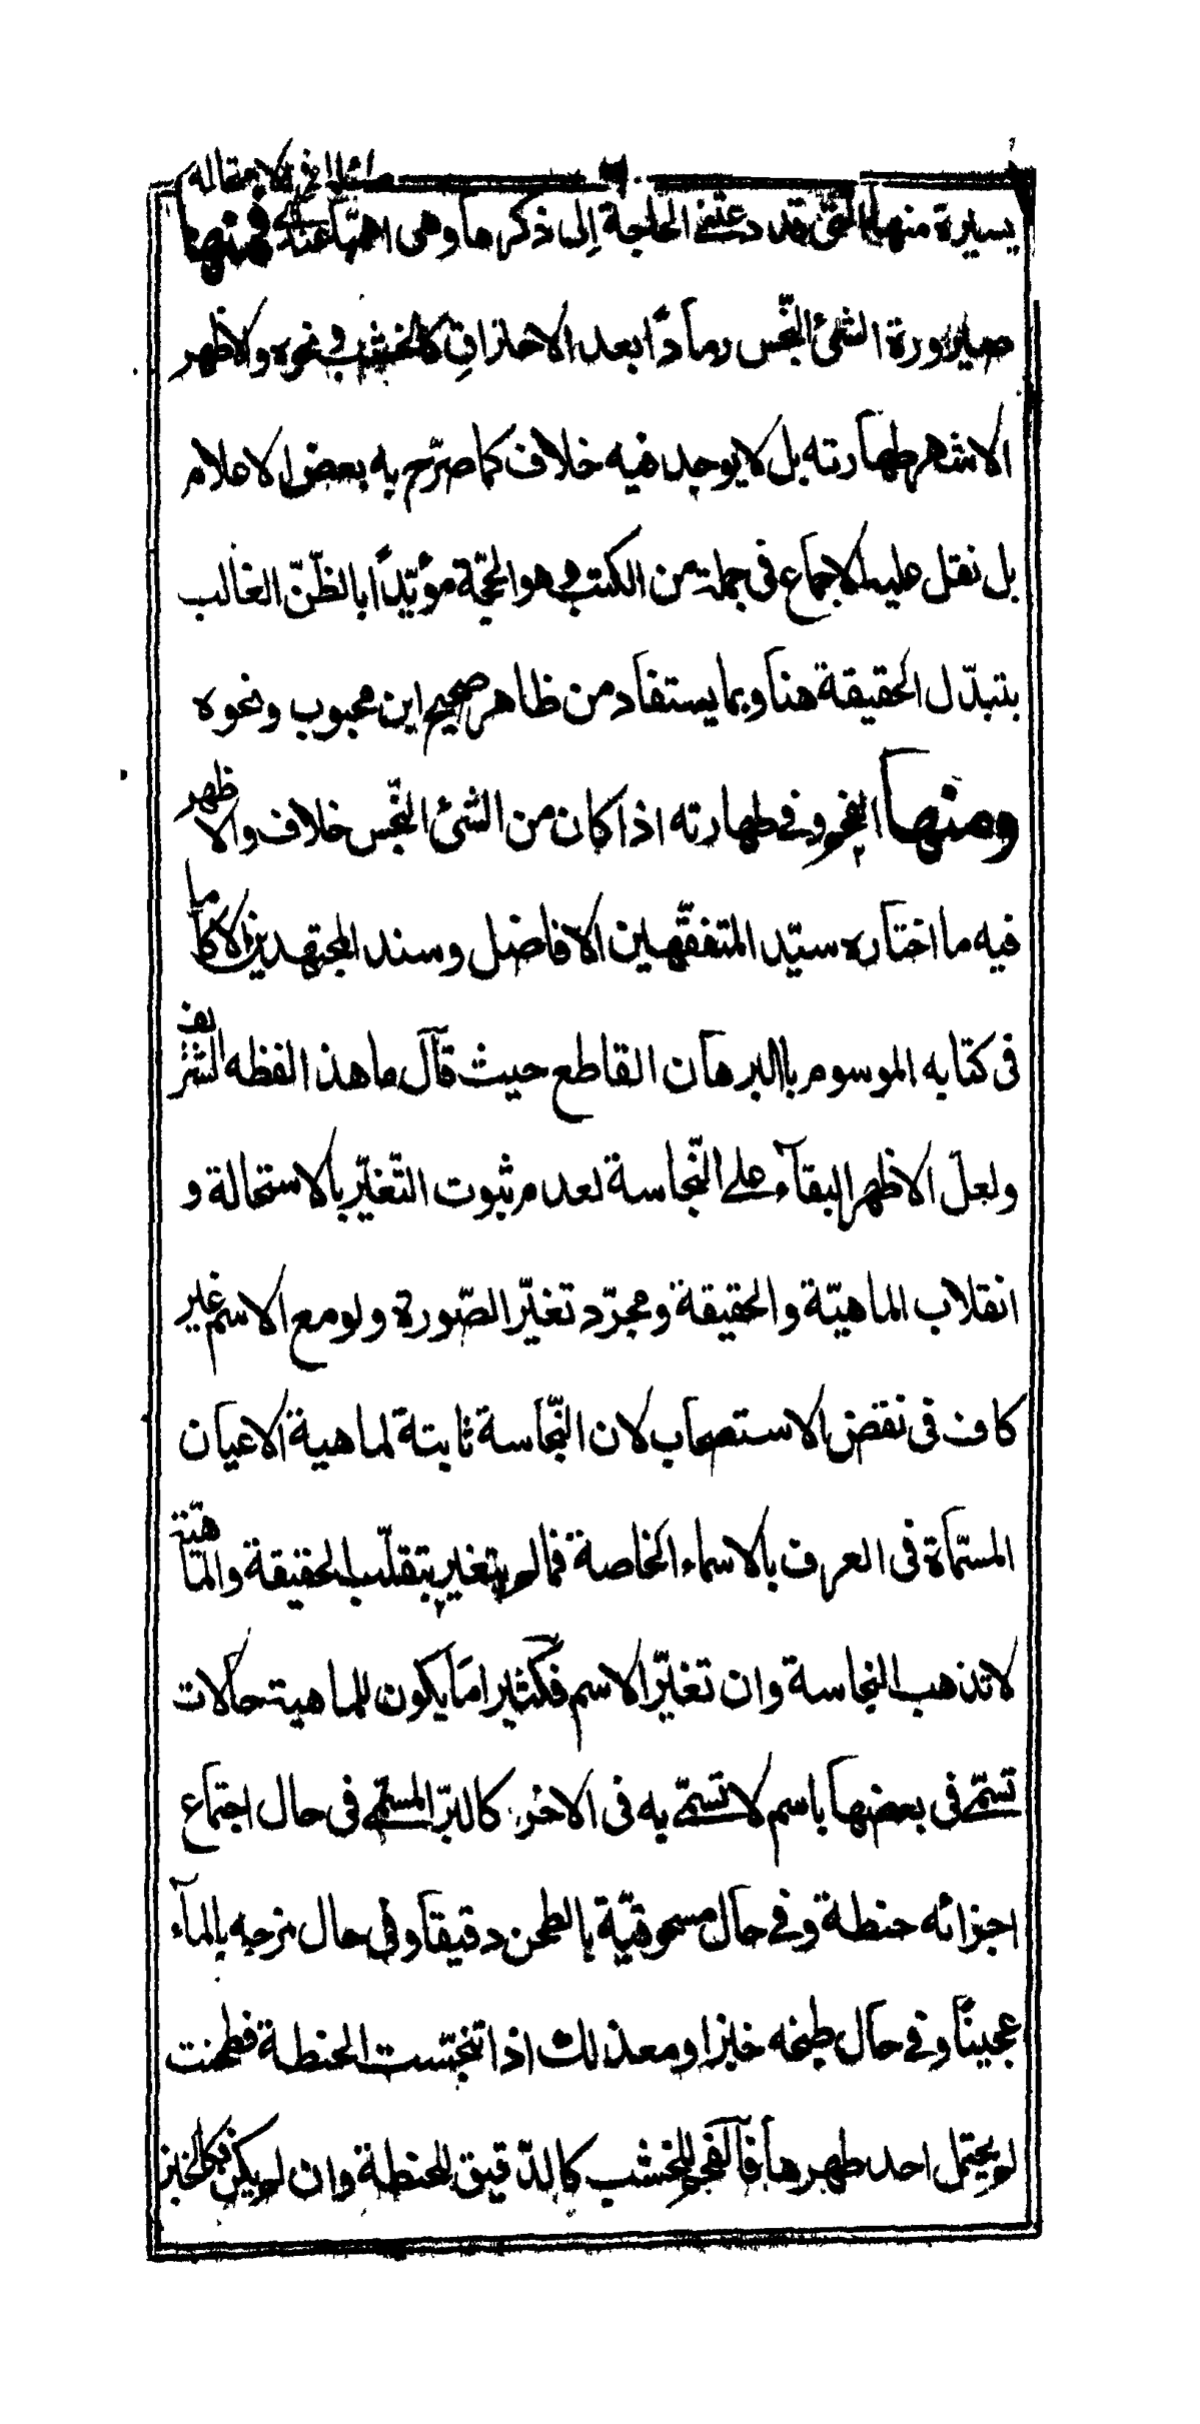 يسيرة منها التى قد دعتنى الحاجة إلى ذكرها وهى اهمّها عندى فمنها
صيرورة الشئ النّجس رمادًا بعد الاحتراقِ كالخشب ونحوه والاظهر
الاشهر طهارته بل لا يوجد فيه خلاف كما صرّح به بعض الاعلام
بل نقل عليه الاجماع فى جملة من الكتب وهو الحجّة مؤيّدًا بالظنّ الغالب
بتبدّل الحقيقة هنا وبما يستفاد من ظاهر صحيح ابن محبوب ونحوه
ومنها الفحم وفى طهارته اذا كان من الشئ النّجس خلاف والاظهر
فيه ما اختاره سيّد المتفقّهين الافاضل وسند المجتهدين الاكا
فى كتابه الموسوم باالبرهان القاطع حيث قال ما هذا لفظه الشريف
ولعلّ الاظهر البقآء على النّجاسة لعدم ثبوت التّغيّر بالاستحالة و
انقلاب الماهيّة والحقيقة ومجرّد تغيّر الصّورة ولو مع الاسم غير
كاف فى نقض الاستصحاب لان النّجاسة ثابتة لماهية الاعيان
المسمّاة فى العرف بالاسماء الخاصة فما لم يتغير بتقلّب الحقيقة والماهيّة
لا تذهب النجاسة وان تغيّر الاسم فكثيرا ما يكون للماهية حالات
تسمّى فى بعضها باسم لا تسمّى به فى الاخر كالبرّ المسمّى فى حال اجتماع
اجزائه حنطة وفى حال مسحوقيّة بالطحن دقيقا وفى حال مزجه بالمآء
عجينًا وفى حال طبخه خبزا ومع ذلك اذا تنجّست الحنطة فطحنت
لم يحتمل احد طهرها فالفحم للخشب كالدّقيق للحنطة وان لم يكن كالخبز